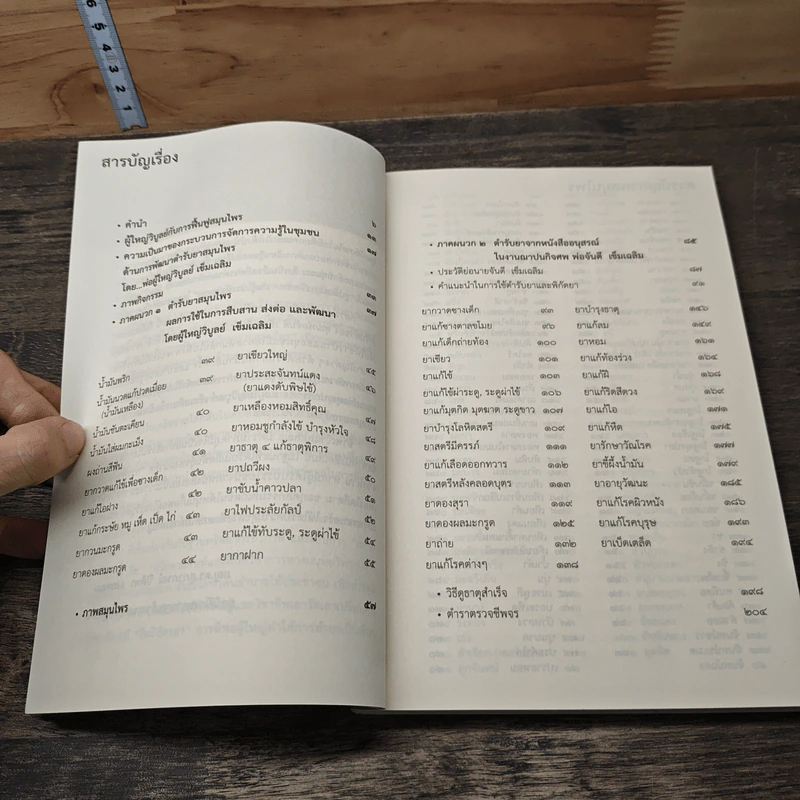 6 5 4 3 2 1
สารบัญเรื่อง
• คำนำ ๖
• ผู้ใหญ่วิบูลย์กับการฟื้นฟูสมุนไพร ๑๑
• ความเป็นมาของกระบวนการจัดการความรู้ในชุมชน ๑๗
ด้านการพัฒนาตำรับยาสมุนไพร
โดย...พ่อผู้ใหญ่วิบูลย์ เข็มเฉลิม
• ภาพกิจกรรม ๓๑
• ภาคผนวก ๑ ตำรับยาสมุนไพร ๓๗
ผลการใช้ในการสืบสาน ส่งต่อ และพัฒนา
โดยผู้ใหญ่วิบูลย์ เข็มเฉลิม
น้ำมันพริก ๓๙ ยาเขียวใหญ่ ๔๕
น้ำมันนวดแก้ปวดเมื่อย ๓๙ ยาประสะจันทน์แดง ๔๖
(น้ำมันเหลือง) (ยาแดงดับพิษไข้)
น้ำมันชันตะเคียน ๔๐ ยาเหลืองหอมสิทธิ์คุณ ๔๗
น้ำมันใส่ผมกะเม็ง ๔๐ ยาหอมชูกำลังใช้ บำรุงหัวใจ ๔๘
ผงถ่านสีฟัน ๔๑ ยาธาตุ ๔ แก้ธาตุพิการ ๔๙
ยากวาดแก้ไข้เพื่อซางเด็ก ๔๒ ยาปถวีผง ๕๐
ยาแก้ไอฝาง ๔๒ ยาขับน้ำคาวปลา ๕๑
ยาแก้กระษัย หมู เห็ด เป็ด ไก่ ๔๓ ยาไฟประลัยกัลป์ ๕๒
ยากวนมะกรูด ๔๓ ยาแก้ไข้ทับระดู, ระดูผ่าไข้ ๕๔
ยาดองผลมะกรูด ๔๔ ยากาฝาก ๕๕
• ภาพสมุนไพร ๕๗
• ภาคผนวก ๒ ตำรับยาจากหนังสืออนุสรณ์ ๘๕
ในงานฌาปนกิจศพ พ่อจันดี เข็มเฉลิม
• ประวัติย่อนายจันดี เข็มเฉลิม ๘๗
• คำแนะนำในการใช้ตำรับยาและพิกัดยา ๙๑
ยากวาดซางเด็ก ๙๓ ยาบำรุงธาตุ ๑๔๖
ยาแก้ซางตาลขโมย ๙๖ ยาแก้ลม ๑๔๙
ยาแก้เด็กถ่ายท้อง ๑๐๐ ยาหอม ๑๖๑
ยาเขียว ๑๐๑ ยาแก้ท้องร่วง ๑๖๔
ยาแก้ไข้ ๑๐๓ ยาแก้ฝี ๑๖๘
ยาแก้ไข้ผ่าระดู, ระดูผ่าไข้ ๑๐๖ ยาแก้ริดสีดวง ๑๖๙
ยาแก้มุตกิด มุตฆาต ระดูขาว ๑๐๗ ยาแก้ไอ ๑๗๑
ยาบำรุงโลหิตสตรี ๑๐๙ ยาแก้หืด ๑๗๕
ยาสตรีมีครรภ์ ๑๑๑ ยารักษาวัณโรค ๑๗๗
ยาแก้เลือดออกทวาร ๑๑๒ ยาขี้ผึ้งน้ำมัน ๑๗๙
ยาสตรีหลังคลอดบุตร ๑๑๓ ยาอายุวัฒนะ ๑๘๕
ยาดองสุรา ๑๑๙ ยาแก้โรคผิวหนัง ๑๘๖
ยาดองผลมะกรูด ๑๒๕ ยาแก้โรคบุรุษ ๑๙๓
ยาถ่าย ๑๓๒ ยาเบ็ดเตล็ด ๑๙๔
ยาแก้โรคต่างๆ ๑๓๘
• วิธีดูธาตุสำเร็จ ๑๙๘
• ตำราตรวจชีพจร ๒๐๔